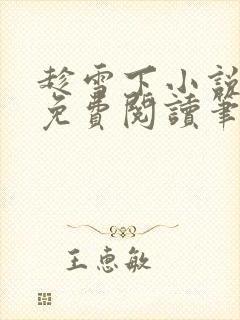 趁雪下小説
免費閱讀筆
王惠敏